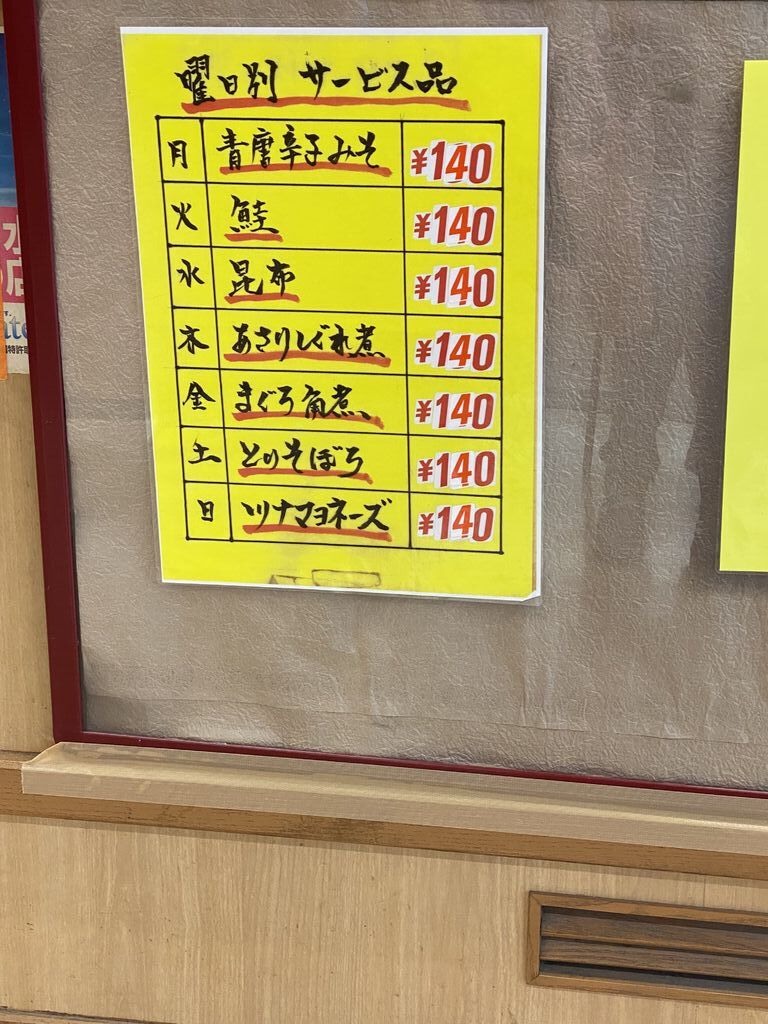 曜日別 サービス品
月 青唐辛子みそ ¥140
火 鮭 ¥140
水 昆布 ¥140
木 あさりしぐれ煮 ¥140
金 まぐろ角煮 ¥140
土 とりそぼろ ¥140
日 ツナマヨネーズ ¥140